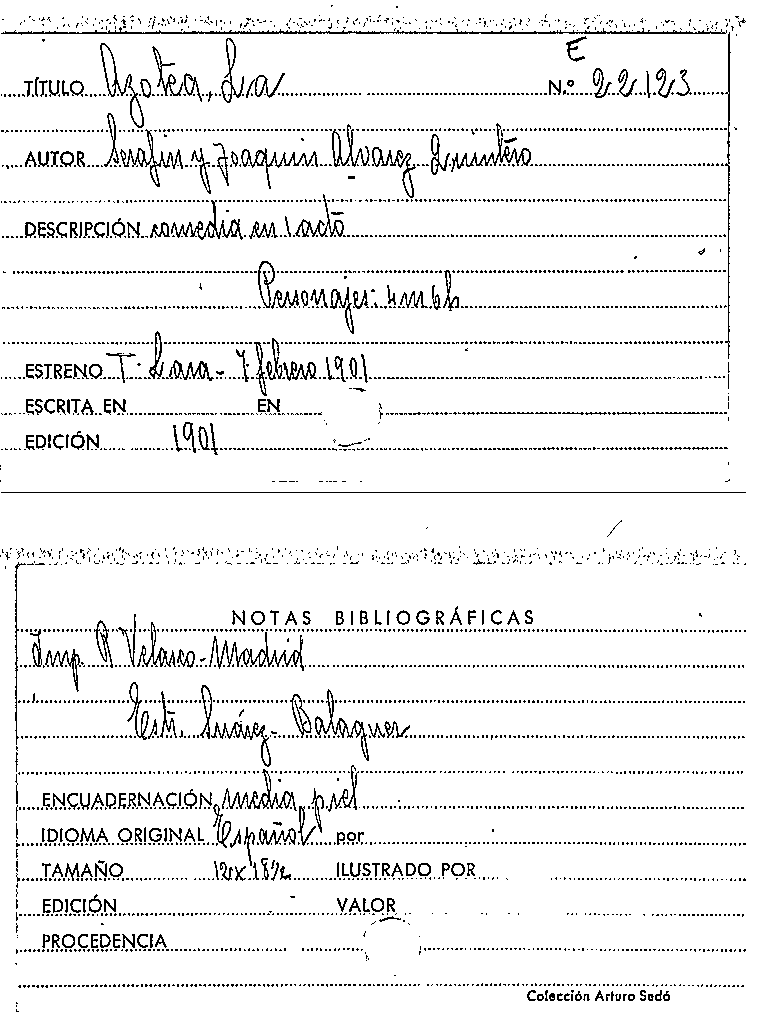 E
TÍTULO Azotea, La N.º 22123
AUTOR Serafin y Joaquin Alvarez Quintero
DESCRIPCIÓN comedia en 1 acto
Personajes: 4m 6h
ESTRENO T. Lara - 7 febrero 1901
ESCRITA EN EN
EDICIÓN 1901
NOTAS BIBLIOGRÁFICAS
Imp. R Velasco - Madrid
Estr. Suárez - Balaguer
ENCUADERNACIÓN media piel
IDIOMA ORIGINAL Español por
TAMAÑO ILUSTRADO POR
EDICIÓN VALOR
PROCEDENCIA
Colección Arturo Sedó